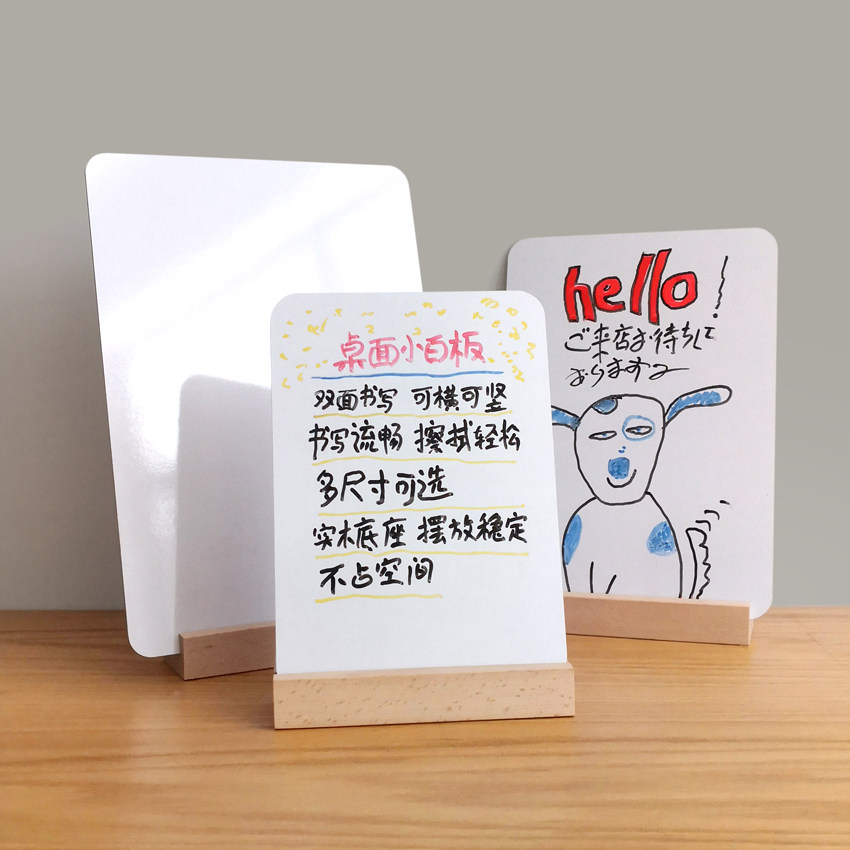 桌面小白板
双面书写 可横可竖
书写流畅 擦拭轻松
多尺寸可选
实木底座 摆放稳定
不占空间
hello!
ご来店お待ちして
おります